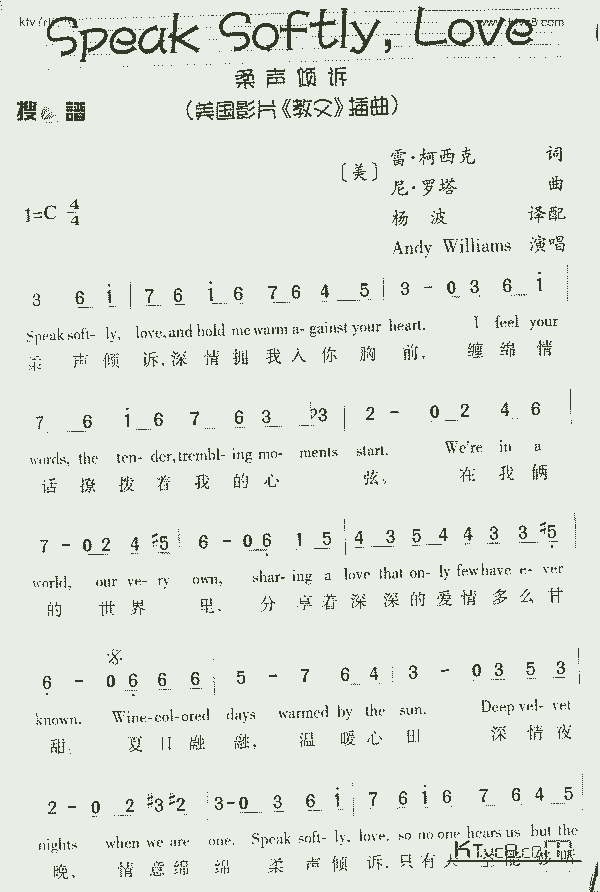 Speak Softly, Love
柔声倾诉
搜 谱
(美国影片《教父》插曲)
〔美〕 雷·柯西克 词
尼·罗塔 曲
1=C 4/4
杨 波 译配
Andy Williams 演唱
3 6 i | 7 6 i 6 7 6 4 5 | 3 - 0 3 6 i
Speak soft- ly, love, and hold me warm a- gainst your heart. I feel your
柔 声 倾 诉,深 情 拥 我 入 你 胸 前, 缠 绵 情
7 6 i 6 7 6 3 ♭3 | 2 - 0 2 4 6
words, the ten- der, trembl- ing mo- ments start. We're in a
话 撩 拨 着 我 的 心 弦。 在 我 俩
7 - 0 2 4 ♯5 | 6 - 0 6 1 5 | 4 3 5 4 4 3 3 ♯5
world, our ve- ry own, shar- ing a love that on- ly few have e- ver
的 世 界 里, 分 享 着 深 深 的 爱 情 多 么 甘
6 - 0 6 6 6 | 5 - 7 6 4 | 3 - 0 3 5 3
known. Wine-col-ored days warmed by the sun. Deep vel- vet
甜。 夏 日 融 融, 温 暖 心 田 深 情 夜
2 - 0 2 ♯3 ♯2 | 3 - 0 3 6 i | 7 6 i 6 7 6 4 5
nights when we are one. Speak soft- ly, love, so no one hears us but the
晚, 情 意 绵 绵 柔 声 倾 诉,只 有 人
KTvc8.com